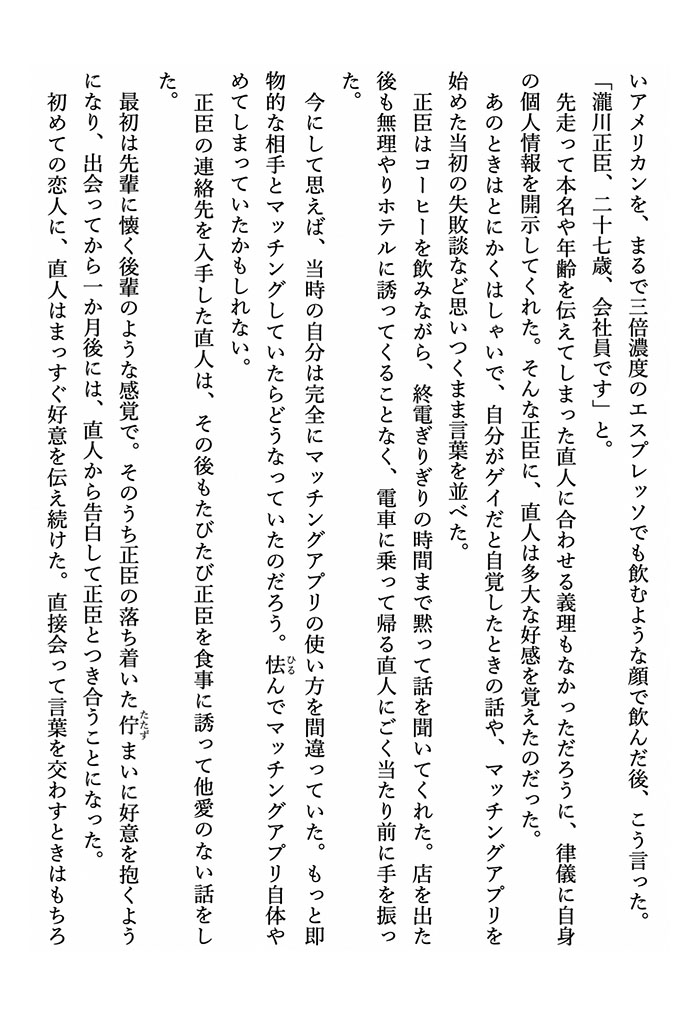 いアメリカンを、まるで三倍濃度のエスプレッソでも飲むような顔で飲んだ後、こう言った。
「瀧川正臣、二十七歳、会社員です」と。
先走って本名や年齢を伝えてしまった直人に合わせる義理もなかっただろうに、律儀に自身
の個人情報を開示してくれた。そんな正臣に、直人は多大な好感を覚えたのだった。
あのときはとにかくはしゃいで、自分がゲイだと自覚したときの話や、マッチングアプリを
始めた当初の失敗談など思いつくまま言葉を並べた。
正臣はコーヒーを飲みながら、終電ぎりぎりの時間まで黙って話を聞いてくれた。店を出た
後も無理やりホテルに誘ってくることなく、電車に乗って帰る直人にごく当たり前に手を振っ
た。
今にして思えば、当時の自分は完全にマッチングアプリの使い方を間違っていた。もっと即
物的な相手とマッチングしていたらどうなっていたのだろう。怯んでマッチングアプリ自体や
ひる
めてしまっていたかもしれない。
正臣の連絡先を入手した直人は、その後もたびたび正臣を食事に誘って他愛のない話をし
た。
最初は先輩に懐く後輩のような感覚で。そのうち正臣の落ち着いた佇まいに好意を抱くよう
たたず
になり、出会ってから一か月後には、直人から告白して正臣とつき合うことになった。
初めての恋人に、直人はまっすぐ好意を伝え続けた。直接会って言葉を交わすときはもちろ